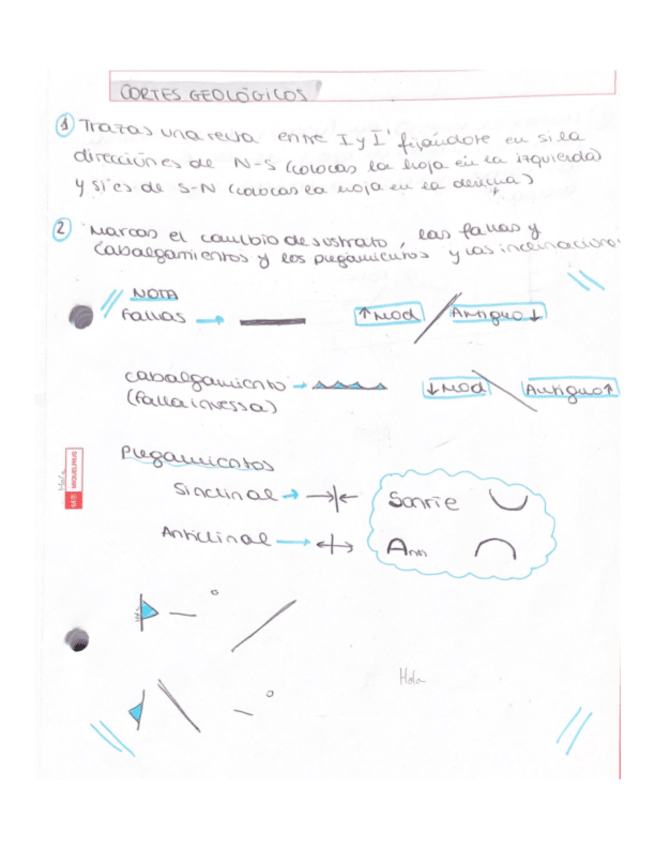 CORTES GEOLÓGICOS
1 Trazas una recta entre I y I' fijándote en si la
dirección es de N-S (colocas la hoja en la izquierda)
y si es de S-N (colocas la hoja en la derecha)
2 Marcas el cambio de sustrato, las fallas y
cabalgamientos y los plegamientos y las inclinaciones
NOTA
Fallas → ↑Mod Antiguo↓
cabalgamiento → ↓Mod Antiguo↑
(falla inversa)
Plegamientos
Sinclinal → Sonríe
Anticlinal →
Hola
MIQUELRIUS
Hola